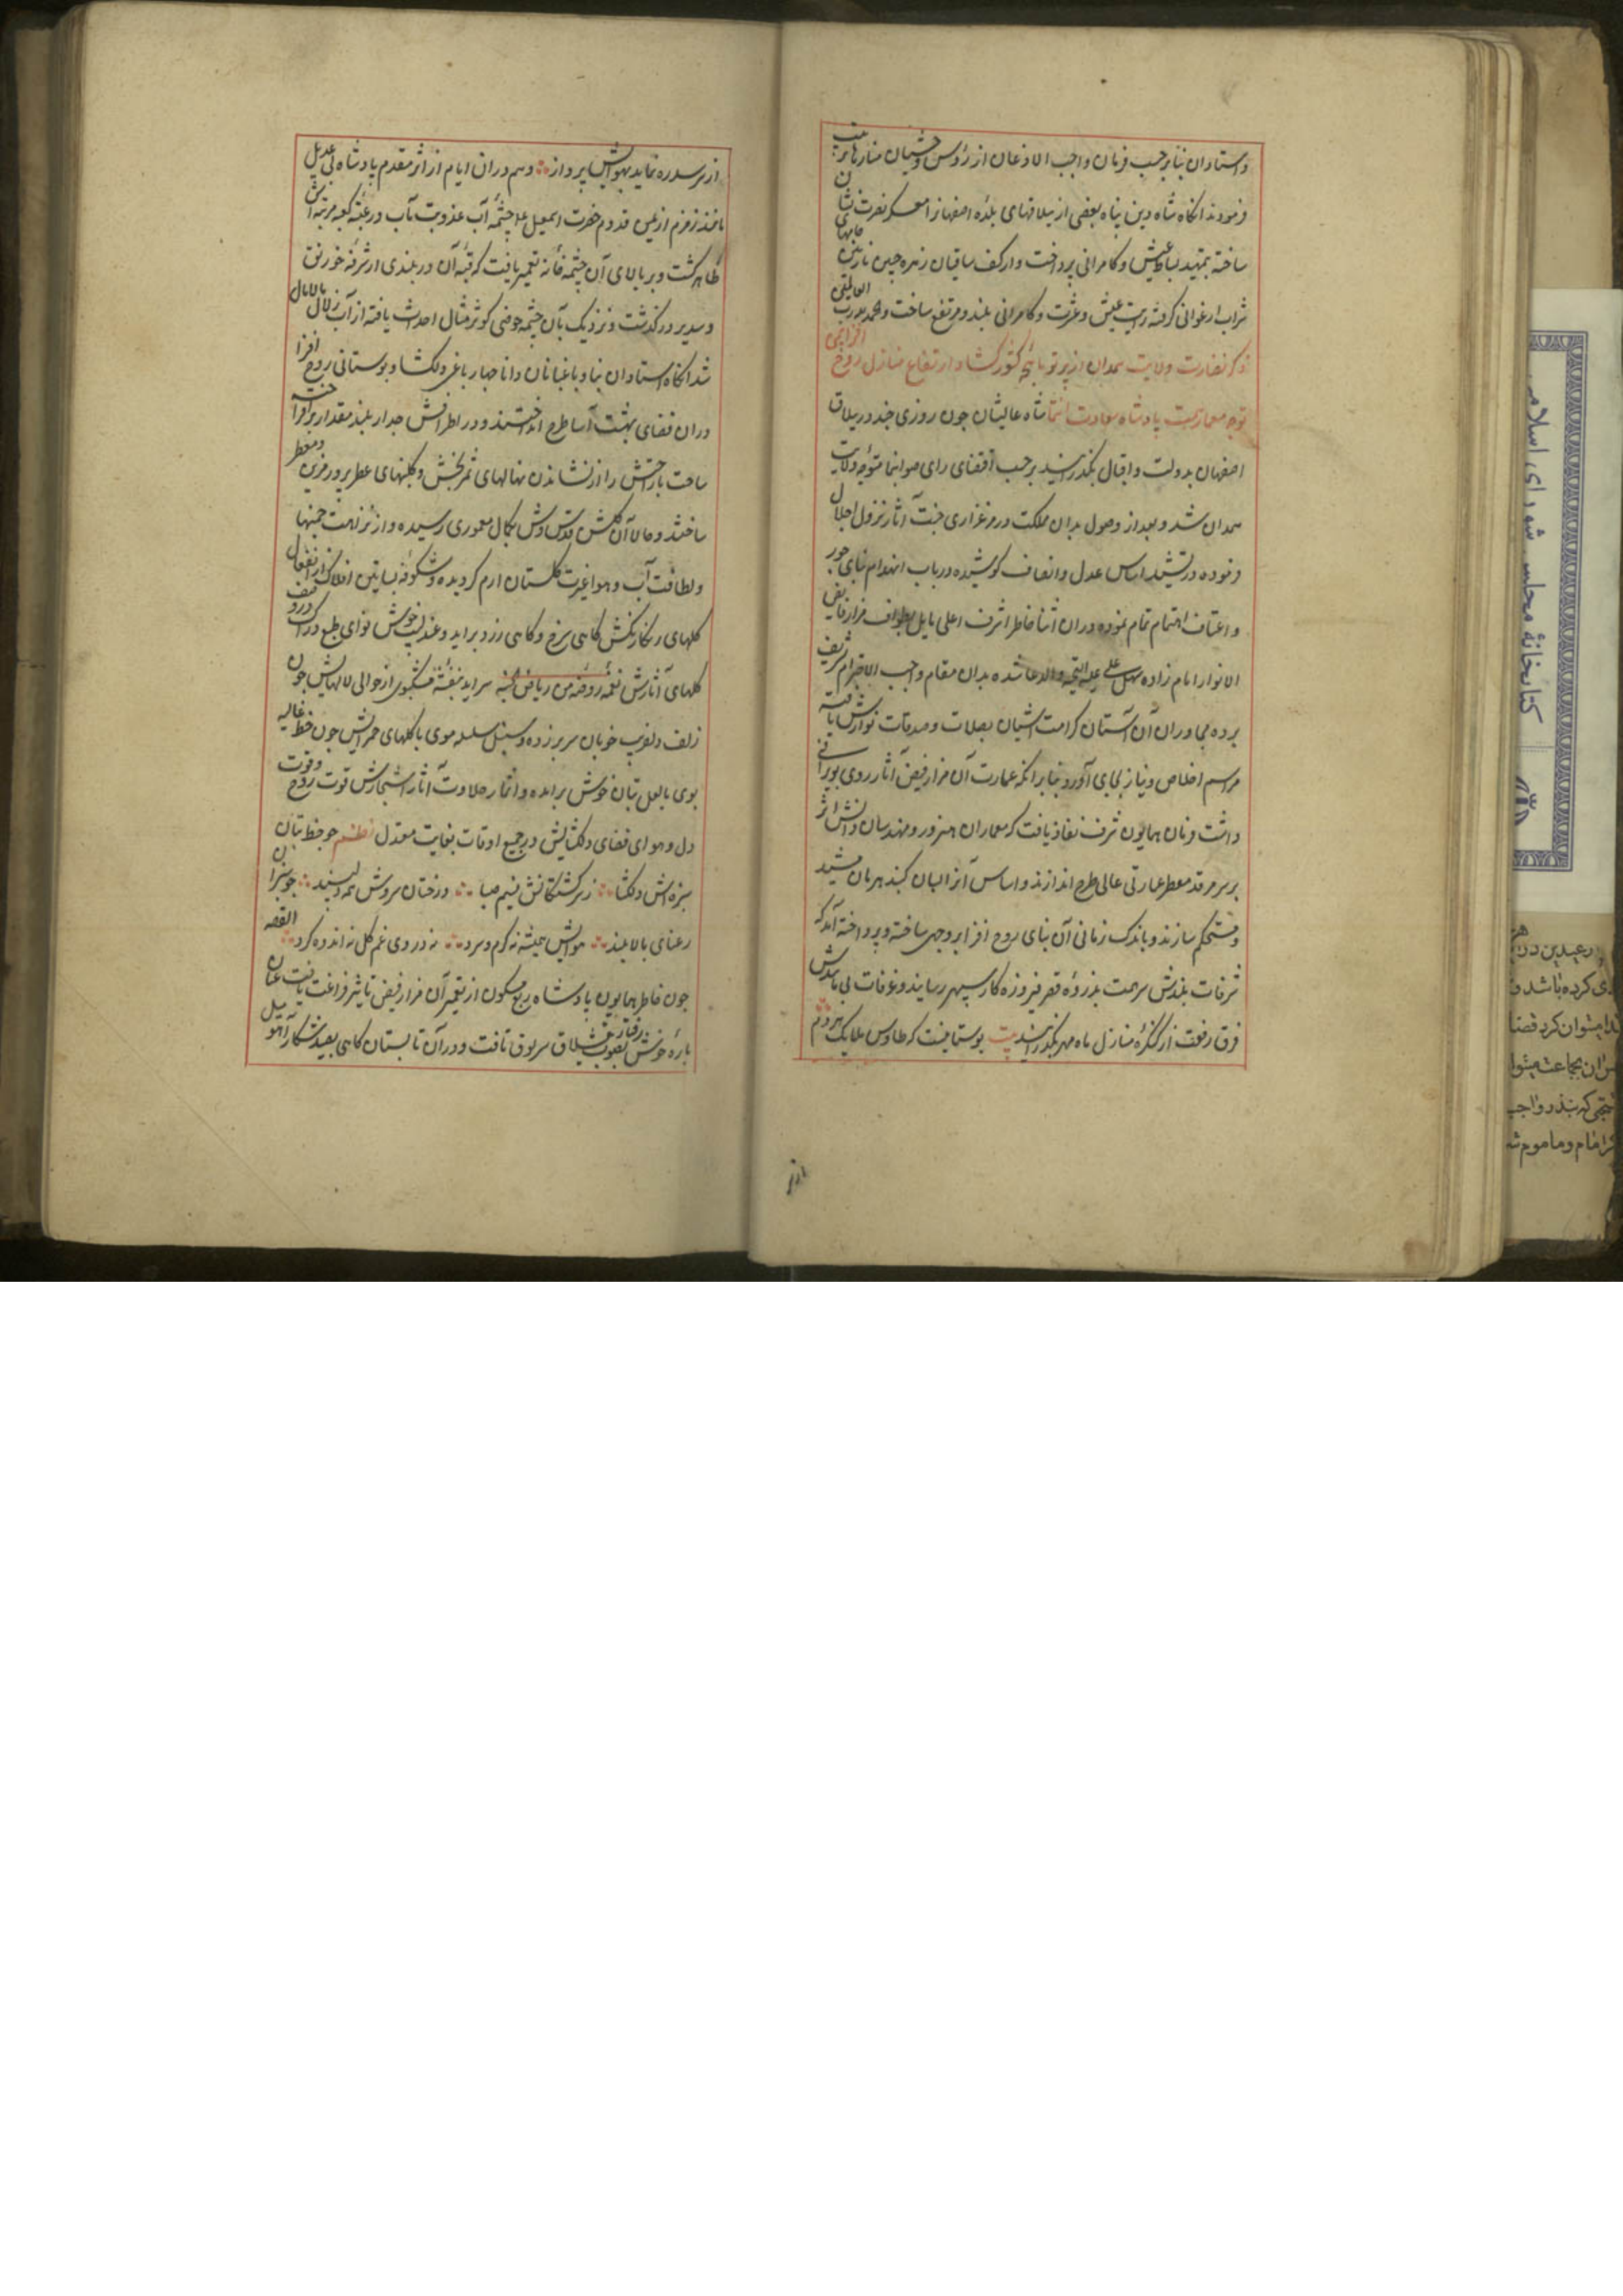 واستادان بنا برحسب فرمان واجب الاذعان از رؤس وحشیان منارها مرتب
فرمودند انکاه شاه دین پناه بعضی از ییلاقهای بلده اصفهانرا معسکر نصرت نشان
ساخته بتمهید بساط عیش و کامرانی پرداخت و از کف ساقیان زهره جبین نازنین جامهای
شراب ارغوانی کرفته رایت عیش و عشرت و کامرانی بلند و مرتفع ساخت والحمد لله رب العالمین
ذکر نضارت ولایت همدان از پرتو ماهچه کشورکشا و ارتفاع منازل روح افزای
توجه معمار همت پادشاه سعادت انتما شاه عالیشان چون روزی چند در ییلاق
اصفهان بدولت و اقبال بگذرانید برحسب اقتضای رای صوابنما متوجه ولایت
همدان شد و بعد از وصول بدان مملکت در مرغزاری جنت آثار نزول اجلال
فرموده در تشیید اساس عدل و انصاف کوشیده در باب انهدام بنای جور
و اعتساف اهتمام تمام نموده در ان اثنا خاطر اشرف اعلی مایل بطواف مزار فایض
الانوار امام زاده سهل علی علیه التحیه والدعا شده بدان مقام واجب الاحترام تشریف
برده مجاوران آن آستان کرامت آشیان بصلات و صدقات نوازش یافته
مراسم اخلاص و نیاز بجای آورد و بنا بر انکه عمارت آن مزار فیض آثار روی بویرانی
داشت فرمان همایون شرف نفاذ یافت که معماران هنرور و مهندسان دانش اثر
بر سر مرقد معطر عمارتی عالی طرح اندازند و اساس آنرا بسان کنبد هرمان مشید
و مستحکم سازند و باندک زمانی آن بنای روح افزا بر وجهی ساخته و پرداخته آمد که
شرفات بلندش سر همت بذروه قصر فیروزه کار سپهر رسانید و غرفات بی مانندش
فرق رفعت از کنکره منازل ماه و مهر بگذرانید بیت بوستانیست که طاوس ملایک هردم
از سر سدره نماید بهوایش پرواز و هم در ان ایام از اثر مقدم پادشاه بی عدیل
مانند زمزم از یمن قدوم حضرت اسمعیل علا چشمه آب عذوبت مآب در عتبه کعبه مرتبه اش
ظاهر کشت و بر بالای آن چشمه خانه تعمیر یافت که قبه آن در بلندی از شرفه خورنق
و سدیر در کذشت و نزدیک بآن چشمه حوضی کوثر مثال احداث یافته از آب زلال مالامال
شد انکاه استادان بنا و باغبانان دانا چهار باغی دلکشا و بوستانی روح افزا
دران فضای بهشت آسا طرح انداختند و در اطرافش جدار بلند مقدار برافراخته
ساحت با راحتش را از نشاندن نهالهای ثمربخش و کلبنهای عطرپرور مزین و معطر
ساختند و حالا آن کلشن قدس وش بکمال معموری رسیده و از نزاهت چمنها
و لطافت آب و هوا غیرت کلستان ارم کردیده و شکوفه بساتین افلاک از انفعال
کلهای رنکارنکش کاهی سرخ و کاهی زرد براید و عندلیب خوش نوای طبع در وصف
کلهای آثارش نغمه روضه من ریاض الجنه سراید بنفشه مشکبوی از حوالی لالهایش چون
زلف دلفریب خوبان سر بر زده و سنبل سلسله موی با کلهای حمرایش چون خط غالیه
بوی با لعل بتان خوش برامده و اثمار حلاوت آثار اشجارش قوت روح و قوت
دل و هوای فضای دلکشایش در جمیع اوقات بغایت معتدل نظم چو خط بتان
سبزه اش دلکشا ز سرکشتکانش نسیم صبا درختان سروش همه دلپسند چو سبزان
رعنای بالا بلند هوایش همیشه نه کرم و نه سرد نه در وی غم کل نه اندوه کرد القصه
چون خاطر همایون پادشاه ربع مسکون از تعمیر آن مزار فیض تاثیر فراغت یافت عنان
باره خوش رفتار بصوب قشلاق سربوق تافت و در آن تابستان کاهی بصید و شکار آهو
از سر
کتابخانۀ مجلس شورای اسلامی